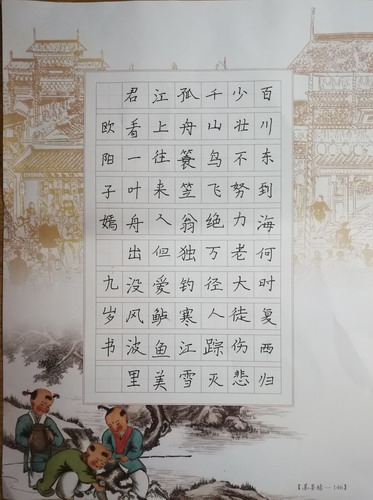 百川东到海何时复西归
少壮不努力老大徒伤悲
千山鸟飞绝万径人踪灭
孤舟簑笠翁独钓寒江雪
江上往来人但爱鲈鱼美
君看一叶舟出没风波里
欧阳子嫣 九岁书
146